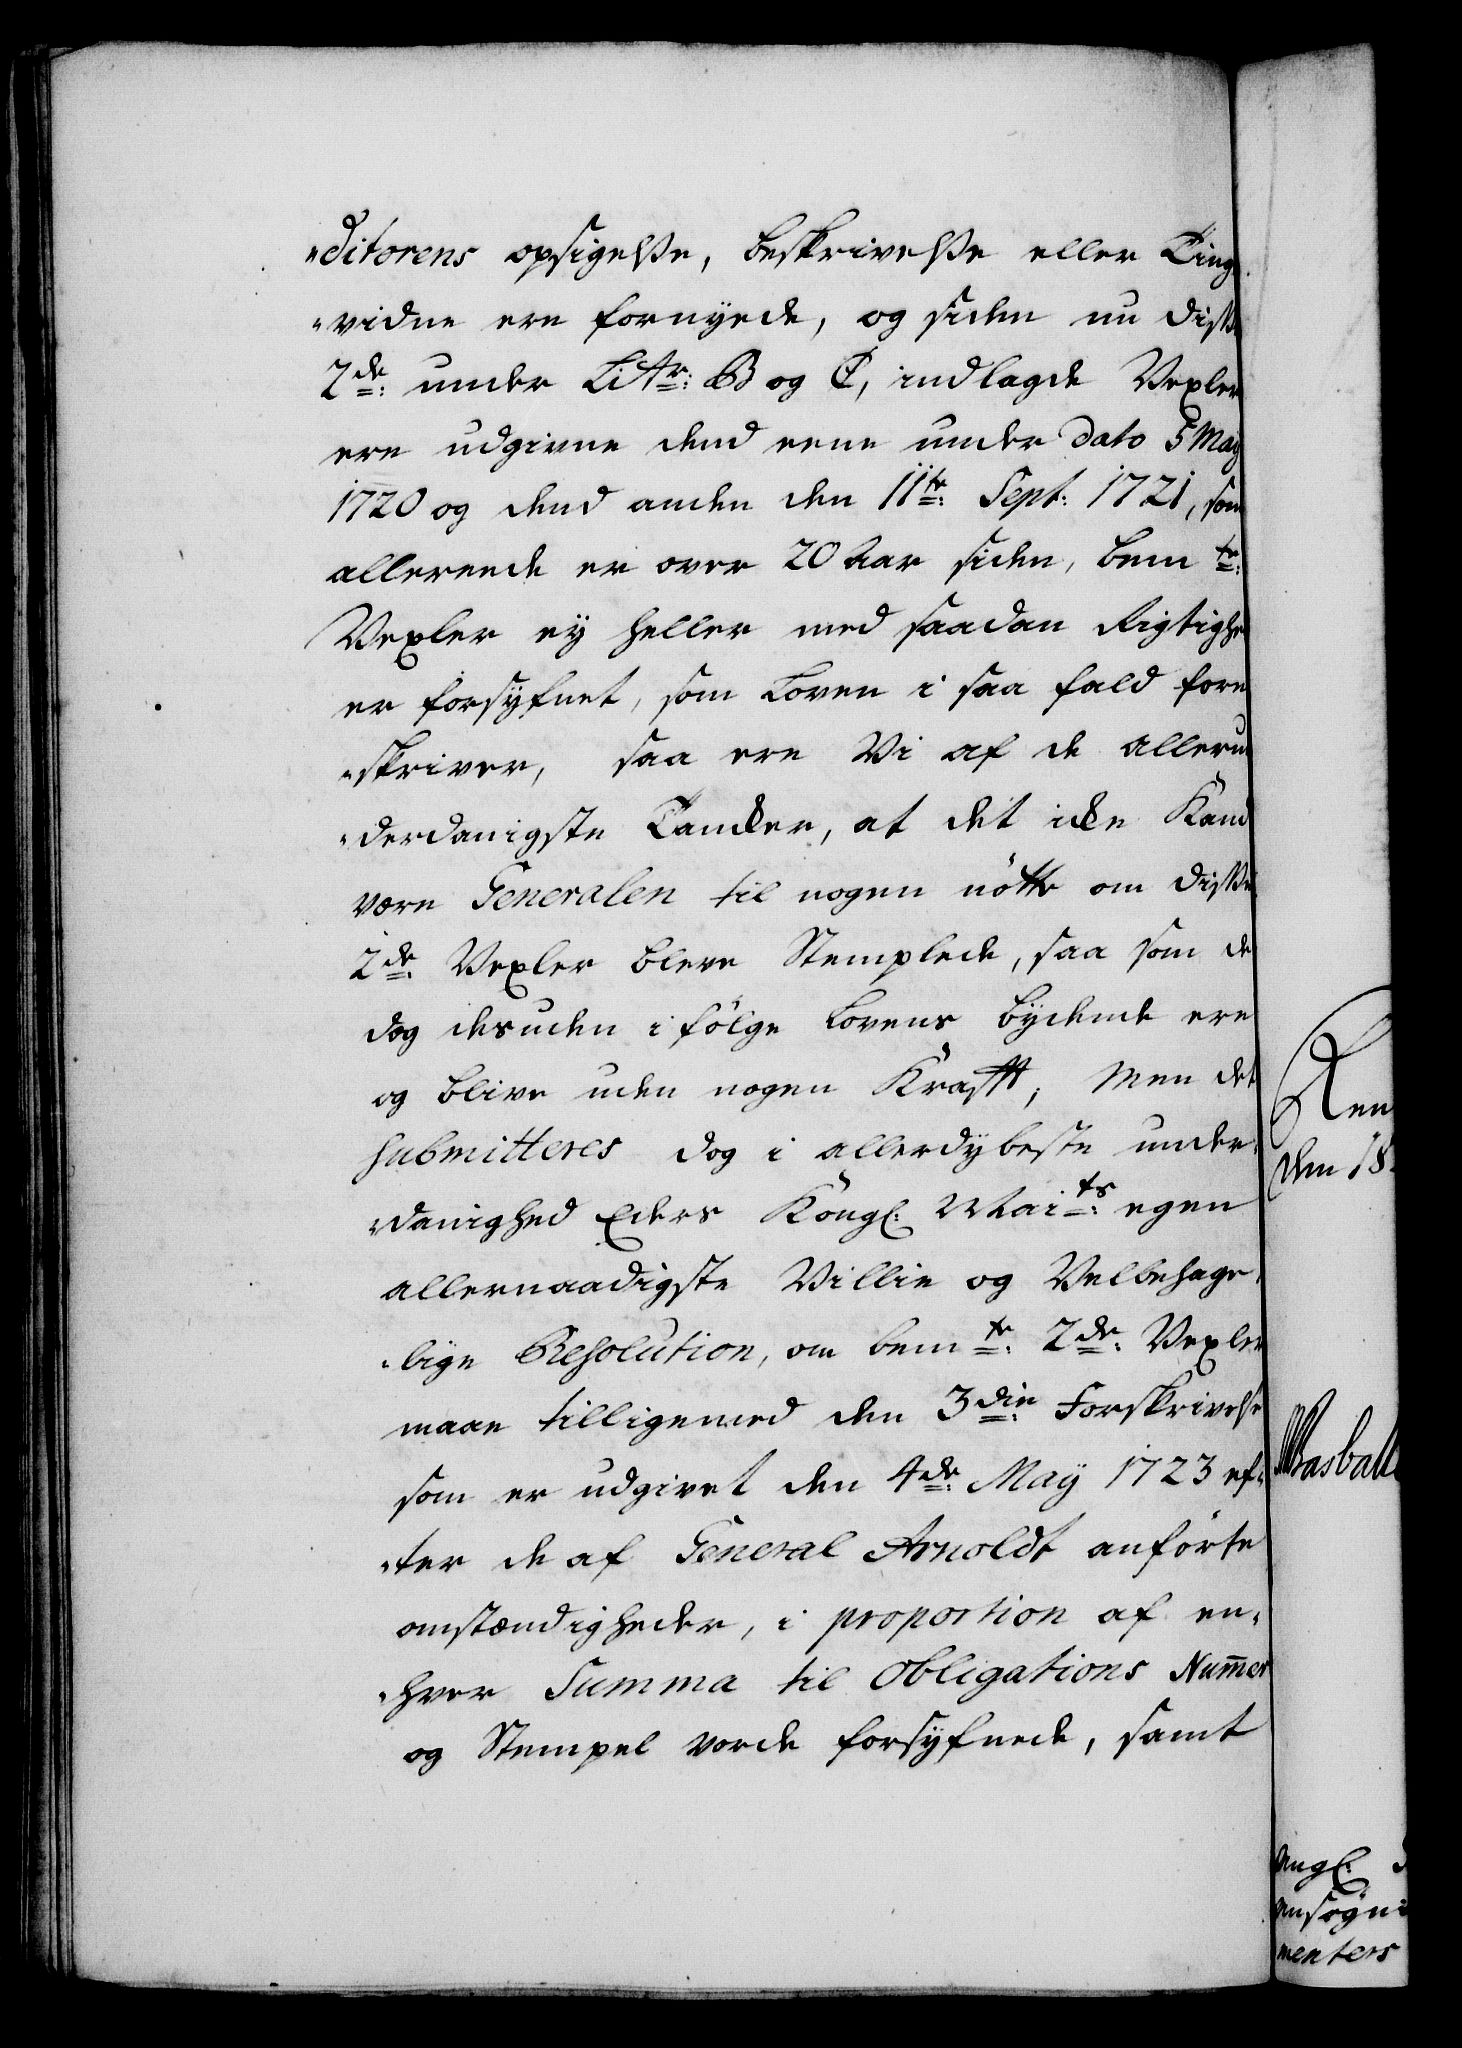 "ditorens opsigelße, beskrivelße eller Ting
"vidne ere fornyede, og siden nu disse
2de: under Litr: B og C, indlagde Vexler
ere udgivne dend eene under Dato 5 May
1720 og dend anden den 11te: Sept: 1721, som
allereede er over 20 Aar siden, bemte:
Vexler ey heller med saadan Rigtighe
er forsyfnet, som Loven i saa fald fore
"skriver, saa ere Vi af de alleru
"derdanigste Tancker, at det icke Kand
være Generalen til nogen nötte om disse
2de: Vexler bleve Stemplede, saa som de
dog desuden i fölge Lovens bydende ere
og blive uden nogen Krafft, Men det
submitteres dog i allerdybeste under,
"danighed Eders Kongl: Maits: egen
allernaadigste Villie og Velbehage,
"lige Resolution, om bemte: 2de: Vexler
maae tilligemed den 3die: Forskrivelse
som er udgivet den 4de: May 1723 ef,
"ter de af General Arnoldt anförte
omstændigheder, i proportion af en,
"hver Summa til Obligations Num̅er
og Stempel vorde forsyfnede, samt
Ren
den 18
ngl:
ansögni
menters